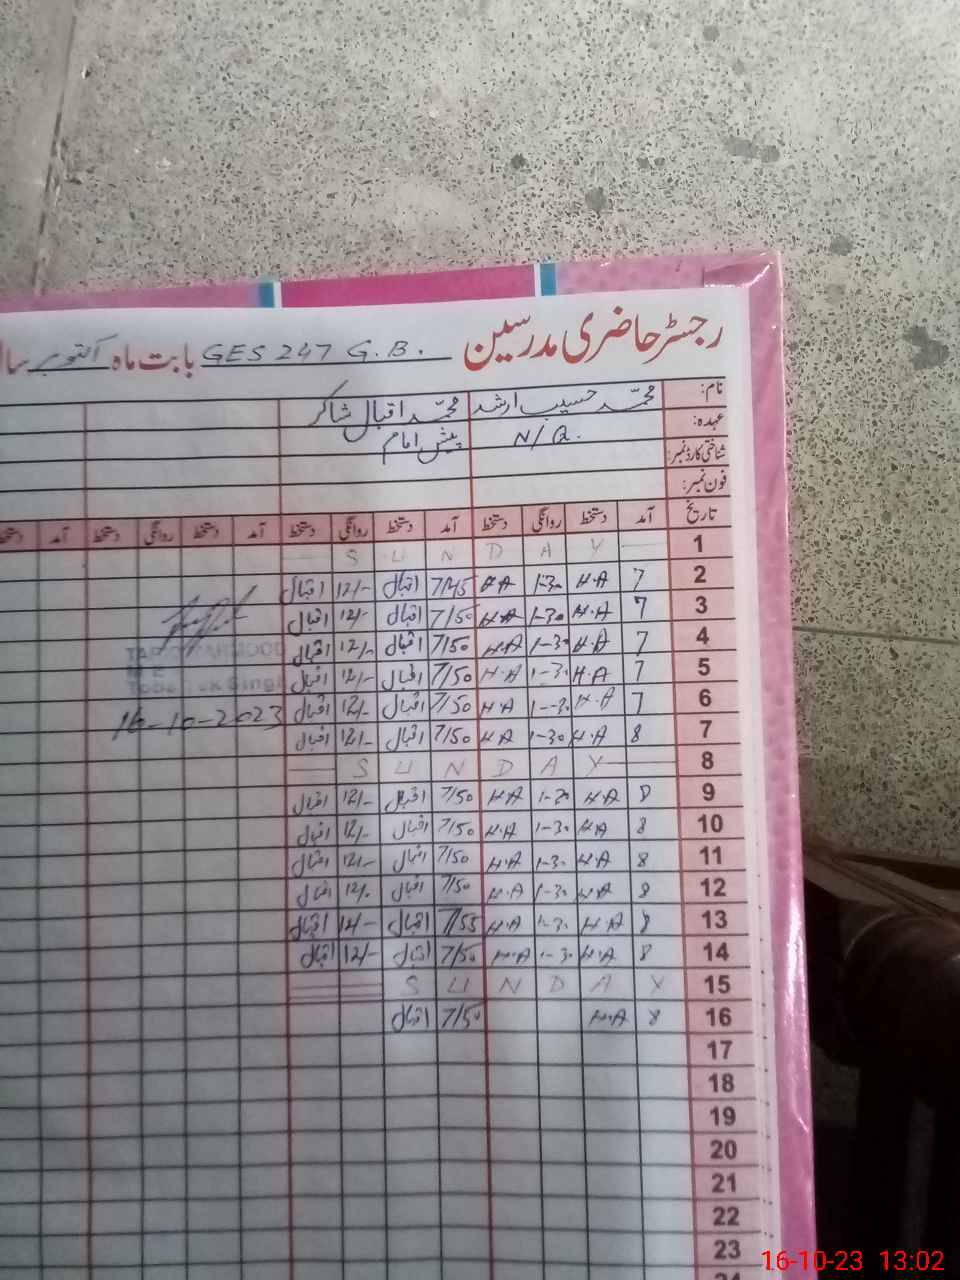 رجسٹر حاضری مدرسین GES 247 G.B. بابت ماہ اکتوبر سال
نام: محمد حسیب ارشد محمد اقبال شاکر
عہدہ: N/Q. پیش امام
شناختی کارڈ نمبر:
فون نمبر:
تاریخ آمد دستخط روانگی دستخط آمد دستخط روانگی دستخط آمد دستخط روانگی دستخط آمد دستخط
1 S U N D A Y S U N D A Y
2 7 H.A 1-30 H.A 7/45 اقبال 12/- اقبال
3 7 H.A 1-30 H.A 7/50 اقبال 12/- اقبال
4 7 H.A 1-30 H.A 7/50 اقبال 12/- اقبال
5 7 H.A 1-30 H.A 7/50 اقبال 12/- اقبال
6 7 H.A 1-30 H.A 7/50 اقبال 12/- اقبال
7 8 H.A 1-30 H.A 7/50 اقبال 12/- اقبال
8 S U N D A Y
9 8 H.A 1-30 H.A 7/50 اقبال 12/- اقبال
10 8 H.A 1-30 H.A 7/50 اقبال 12/- اقبال
11 8 H.A 1-30 H.A 7/50 اقبال 12/- اقبال
12 8 H.A 1-30 H.A 7/50 اقبال 12/- اقبال
13 8 H.A 1-30 H.A 7/55 اقبال 12/- اقبال
14 8 H.A 1-30 H.A 7/50 اقبال 12/- اقبال
15 S U N D A Y
16 8 H.A 7/50 اقبال
17
18
19
20
21
22
23
24
Toba Tek Singh
16-10-2023
16-10-23 13:02